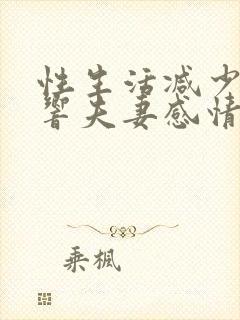 性生活减少
响夫妻感情
乘枫